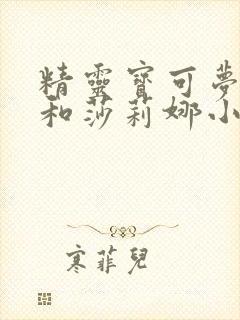 精靈寶可夢
和莎莉娜小
寒菲兒